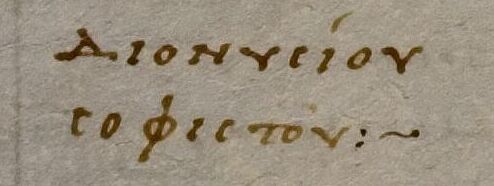 Διονυσίου
σοφιστοῦ:~